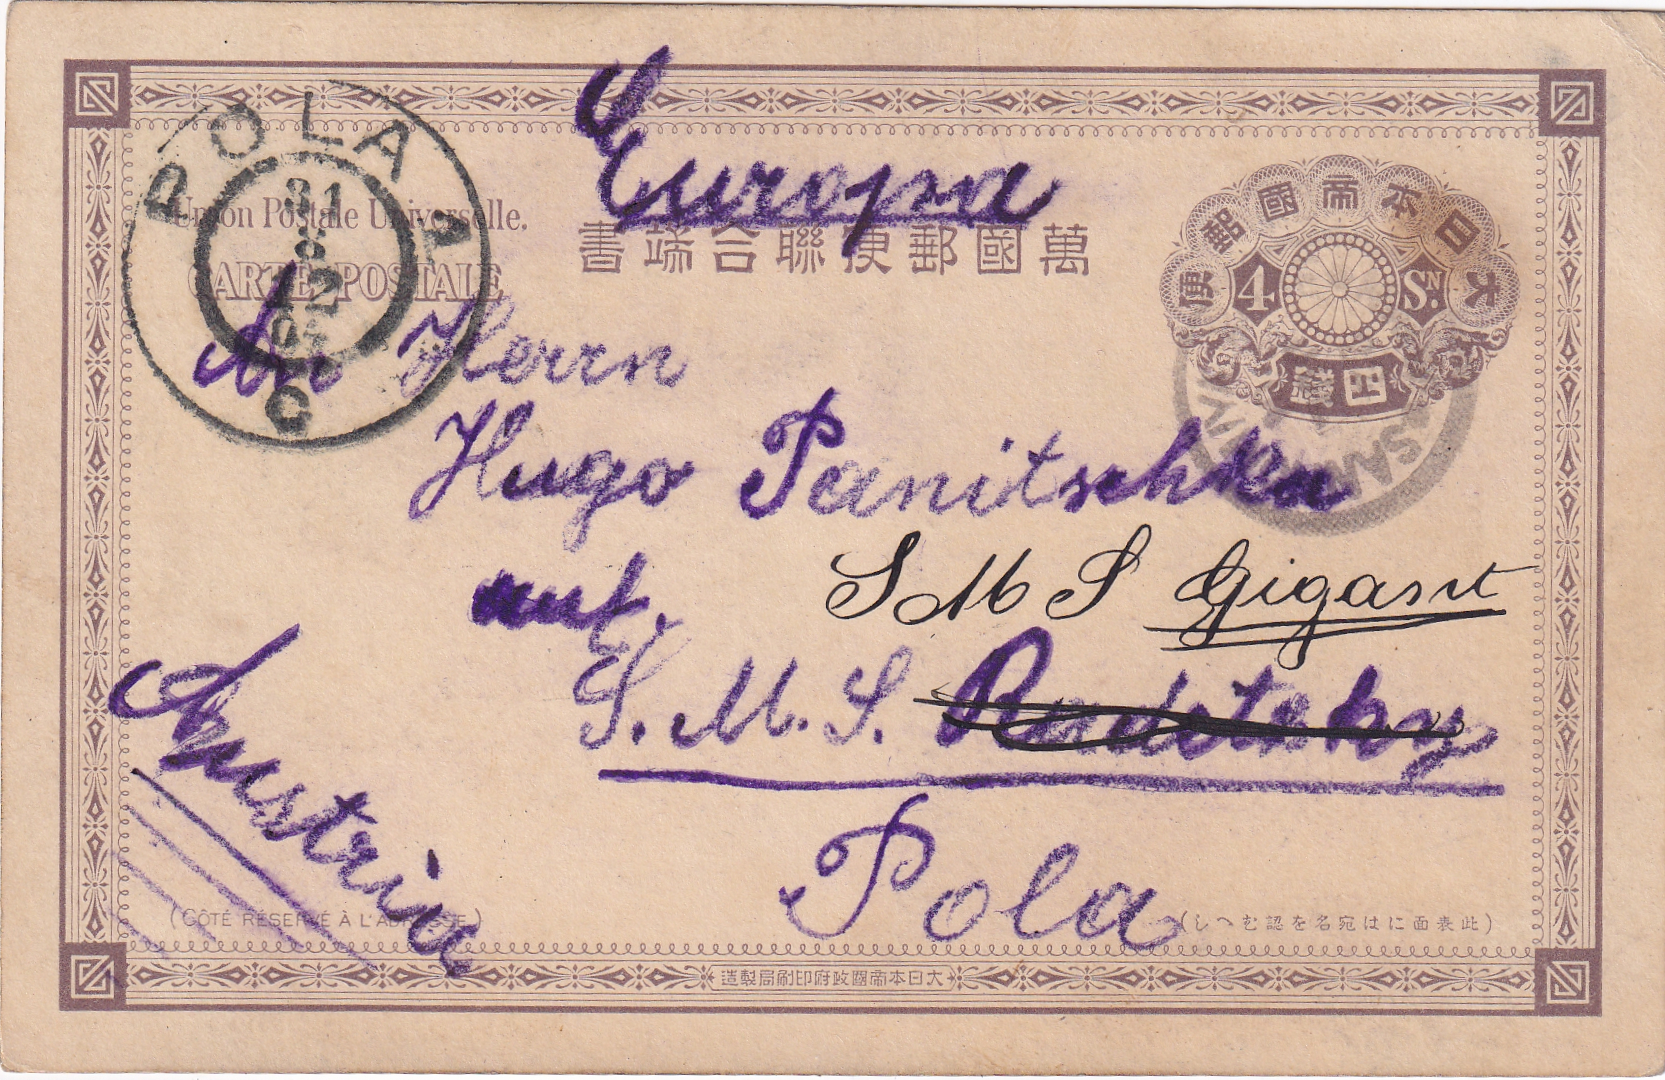 Europa
Union Postale Universelle.
CARTE POSTALE
書端合聯便郵國萬
大日本帝國郵便
4 SN.
四錢
POLA
31
8
C
An Herrn
Hugo Panitschka
auf.
S M S Gigant
S. M. S. Radetzky
Pola
Austria
(CÔTÉ RÉSERVÉ À L'ADRESSE)
(此表面には宛名を認むへし)
大日本帝國政府印刷局製造